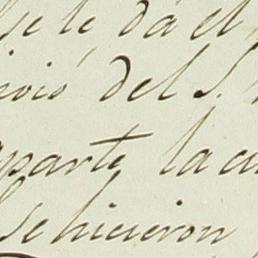 se le dá el
del S.
parte la
se hicieron